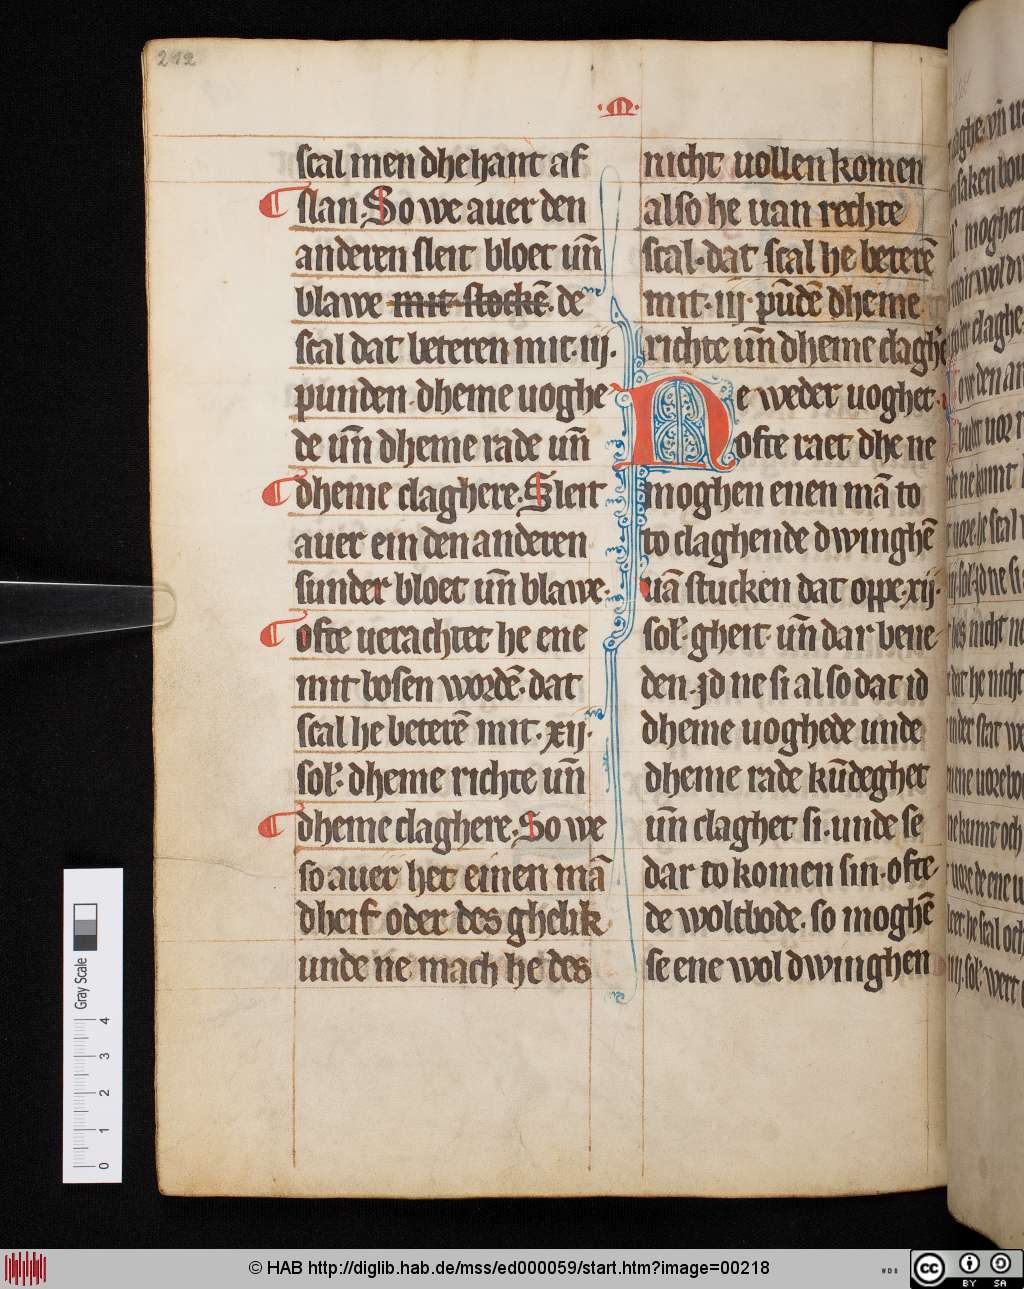 212
·M·
scal men dhe hant af
slan. So we auer den
anderen sleit bloet uñ
blawe mit stockē. de
scal dat beteren mit. iij.
punden. dheme uoghe
de uñ dheme rade uñ
dheme claghere. Sleit
auer ein den anderen
sunder bloet uñ blawe.
ofte uerachtet he ene
mit bosen wordē. dat
scal he beterē mit. xij.
sol. dheme richte uñ
dheme claghere. So we
so auer het einen mā
dheif oder des ghelik
unde ne mach he des
nicht uollen komen
also he uan rechte
scal. dat scal he beterē
mit. iij. pūdē dheme
richte uñ dheme claghē
Ne weder uoghet
ofte raet dhe ne
moghen enen mā to
to claghende dwinghē
uā stucken dat oppe. xij.
sol. gheit. uñ dar bene
den. jd ne si also dat id
dheme uoghede unde
dheme rade kūdeghet
uñ claghet si. unde se
dar to komen sin. ofte
de woltbode. so moghē
se ene wol dwinghen
Gray Scale
4
3
2
1
0
© HAB http://diglib.hab.de/mss/ed000059/start.htm?image=00218
WDB
cc BY SA